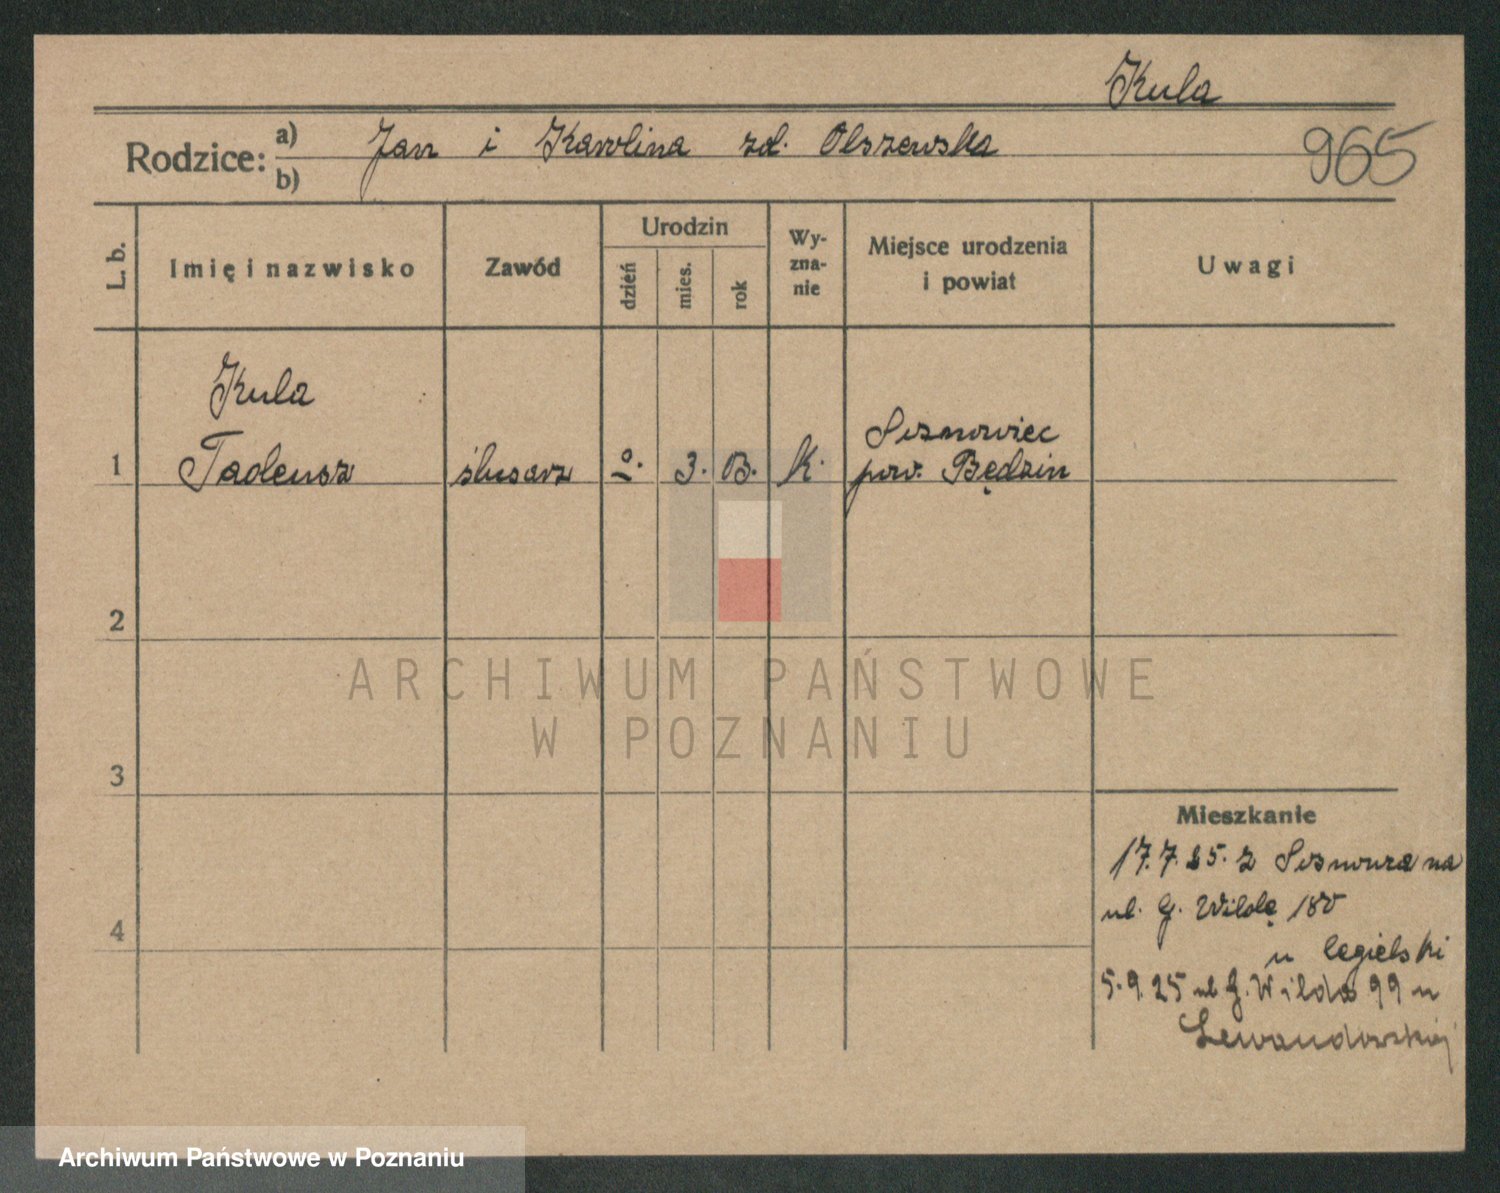 Kula
Rodzice: a) Jan i Karolina zd. Olszewska
b)
965
L. b.
Imię i nazwisko
Zawód
Urodzin
dzień
mies.
rok
Wy-
zna-
nie
Miejsce urodzenia
i powiat
Uwagi
Kula
1 Tadeusz
ślusarz
3.
K.
Sosnowiec
pow. Będzin
2
ARCHIWUM PAŃSTWOWE
W POZNANIU
3
Mieszkanie
17.7.25. z Sosnowca na
ul. G. Wildę 180
4
u Cegielski
5.9.25 ul G. Wilda 99 u
Lewandowskiej
Archiwum Państwowe w Poznaniu